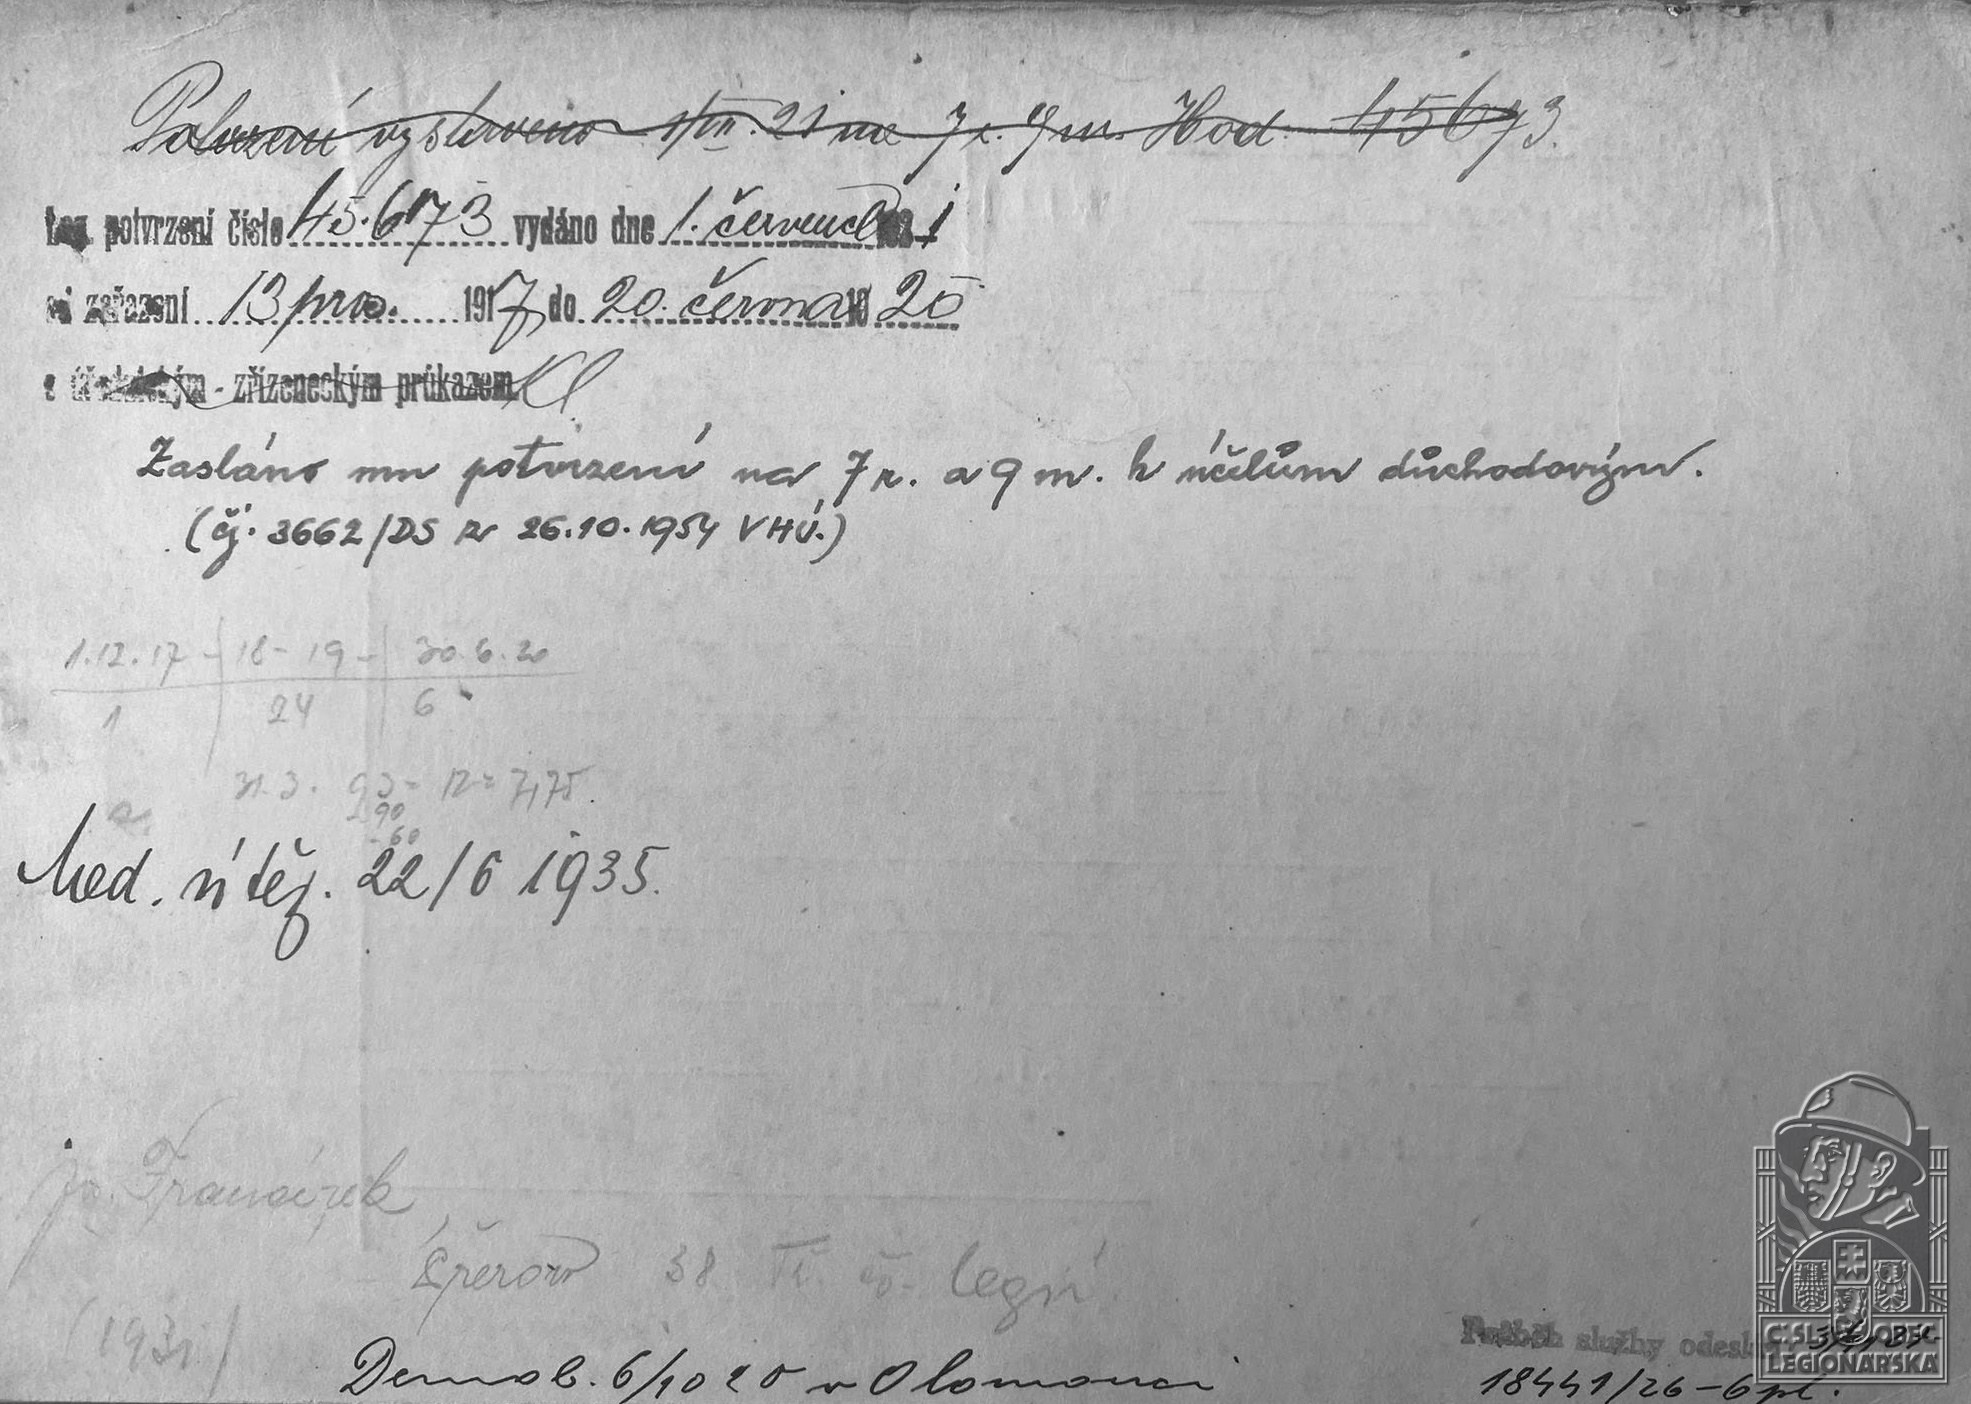 Potvrzení vystaveno 21 na 7 r. 9 m. Hod. 45673.
Leg. potvrzení číslo 45.673 vydáno dne 1. července 1921
od zařazení 13 pros. 1917 do 20. června 1920
s úřednickým - zřízeneckým průkazem
Zasláno mu potvrzení na 7 r. a 9 m. k účelům důchodovým.
(čj. 3662/DS z 26.10.1954 VHÚ.)
1.12.17 - 18 - 19 - 30.6.20
1 24 6
31.3. 93 : 12 = 7,75
90
60
Med. vítěz. 22/6 1935.
Francízek
Přerov 38 Tř. čs. legií
(1931)
Demob. 6/10 20 v Olomouci
Průběh služby odeslán
18441/26-6pl.
ČSL. OBEC
LEGIONÁŘSKÁ